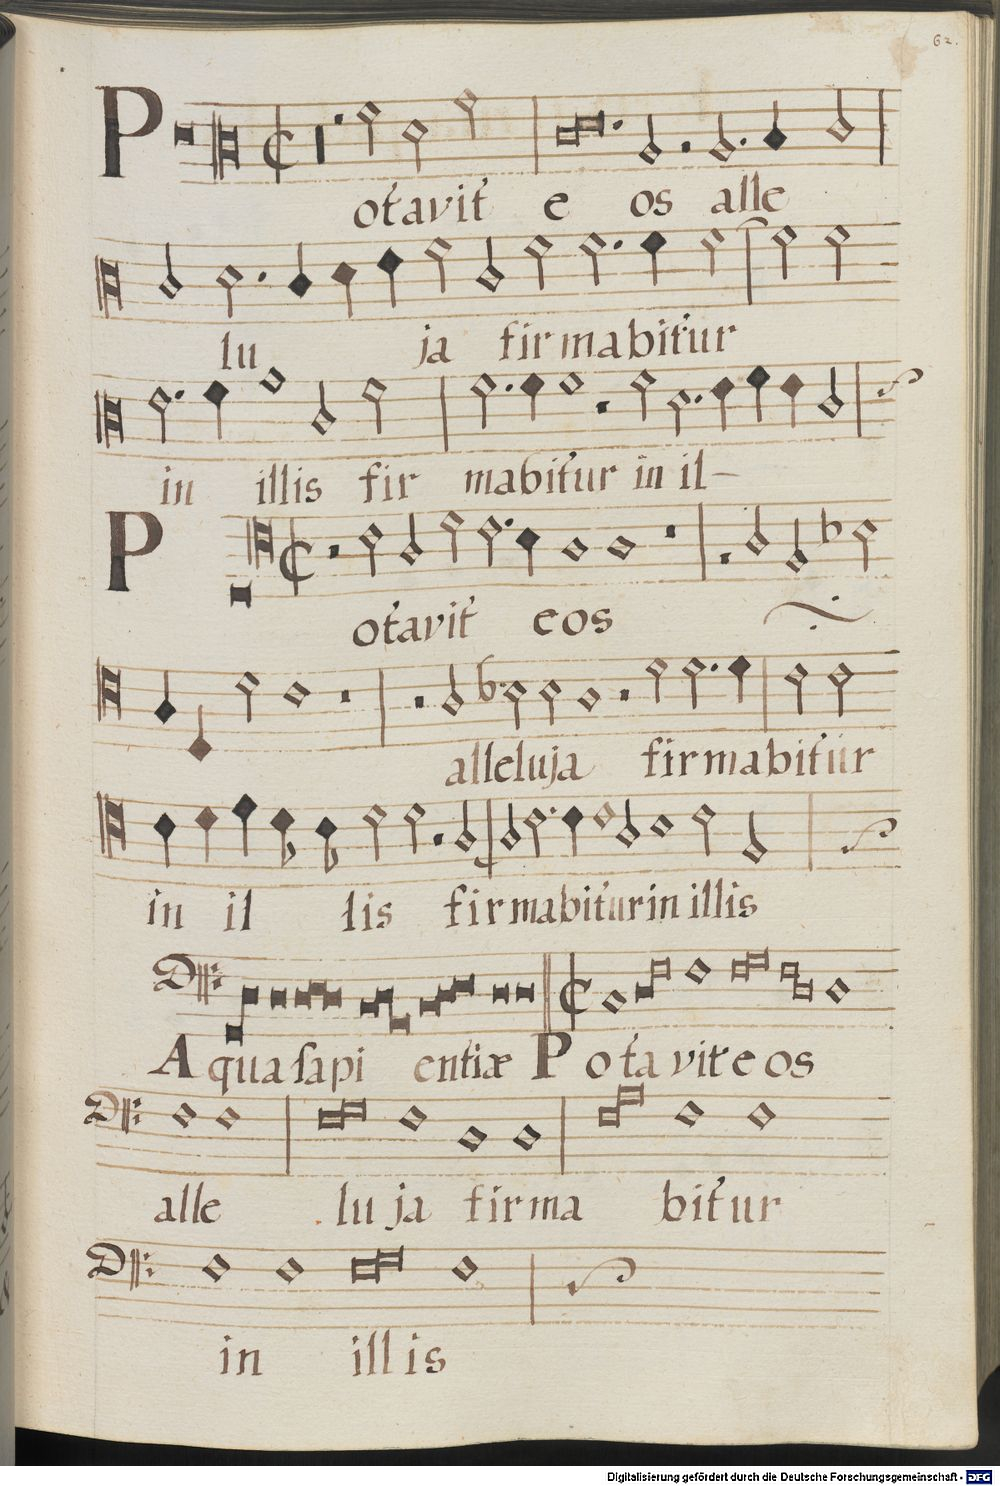 62.
P
otavit e os alle
lu ja firmabitur
in illis fir mabitur in il-
P
otavit eos
alleluja firmabitur
in il lis firmabitur in illis
A qua sapi entiæ Potavit e os
alle lu ja firma bitur
in illis
Digitalisierung gefördert durch die Deutsche Forschungsgemeinschaft - DFG